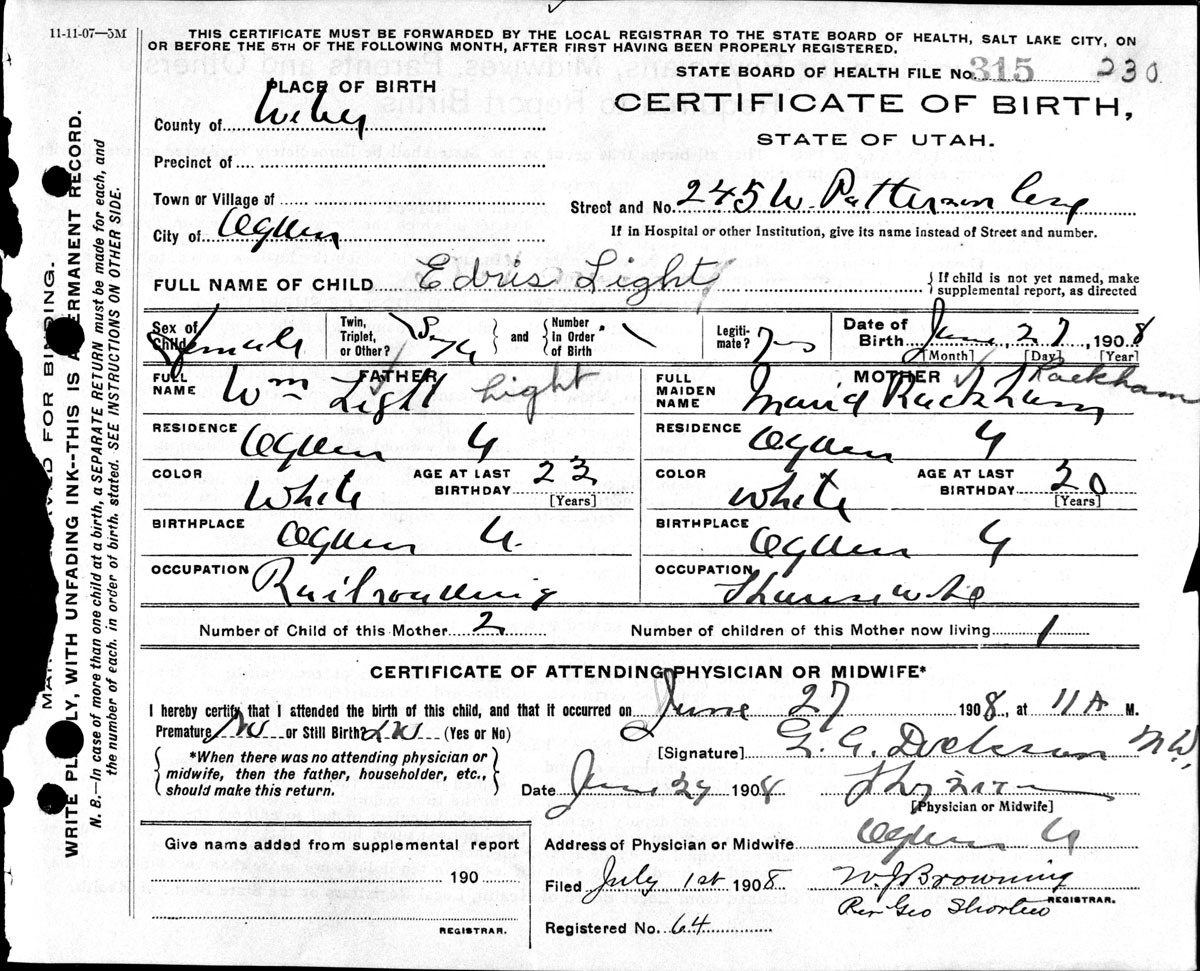 11-11-07—5M
THIS CERTIFICATE MUST BE FORWARDED BY THE LOCAL REGISTRAR TO THE STATE BOARD OF HEALTH, SALT LAKE CITY, ON
OR BEFORE THE 5TH OF THE FOLLOWING MONTH, AFTER FIRST HAVING BEEN PROPERLY REGISTERED.
STATE BOARD OF HEALTH FILE No. 315 230
PLACE OF BIRTH
CERTIFICATE OF BIRTH,
STATE OF UTAH.
County of Weber
Precinct of
Town or Village of
City of Ogden
Street and No. 245 W. Patterson Ave
If in Hospital or other Institution, give its name instead of Street and number.
FULL NAME OF CHILD Edris Light
If child is not yet named, make
supplemental report, as directed
Sex of Child Female
Twin, Triplet, or Other?
and
Number In Order of Birth
Legiti-mate? Yes
Date of Birth June 27, 1908
[Month] [Day] [Year]
FATHER
FULL NAME Wm Light Light
RESIDENCE Ogden U
COLOR White
AGE AT LAST BIRTHDAY 23
[Years]
BIRTHPLACE Ogden U.
OCCUPATION Railroading
MOTHER
FULL MAIDEN NAME Marie Rackham Rackham
RESIDENCE Ogden U
COLOR White
AGE AT LAST BIRTHDAY 20
[Years]
BIRTHPLACE Ogden U
OCCUPATION Housewife
Number of Child of this Mother 2
Number of children of this Mother now living 1
CERTIFICATE OF ATTENDING PHYSICIAN OR MIDWIFE*
I hereby certify that I attended the birth of this child, and that it occurred on June 27 1908, at 11 A M.
Premature No or Still Birth? No (Yes or No)
*When there was no attending physician or
midwife, then the father, householder, etc.,
should make this return.
[Signature] G. A. Dickson M.D.
Date June 27 1908 Physician
[Physician or Midwife]
Give name added from supplemental report
190
REGISTRAR.
Address of Physician or Midwife Ogden U
Filed July 1st 1908 W. J. Browning
REGISTRAR.
Per Geo Shorten
Registered No. 64
FOR BINDING.
WRITE PLAINLY, WITH UNFADING INK--THIS IS A PERMANENT RECORD.
N. B.—In case of more than one child at a birth, a SEPARATE RETURN must be made for each, and
the number of each, in order of birth, stated. SEE INSTRUCTIONS ON OTHER SIDE.